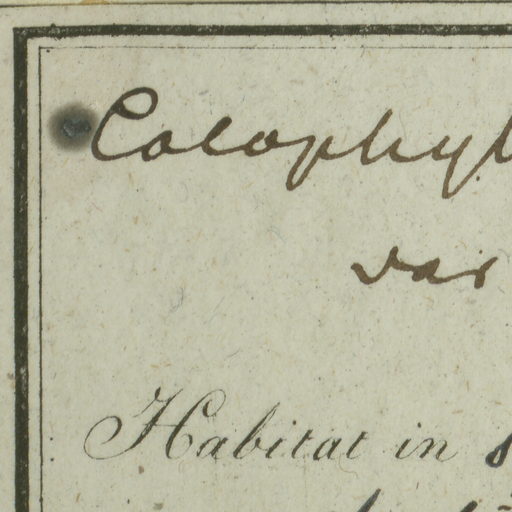 Calophyl
var
Habitat in s